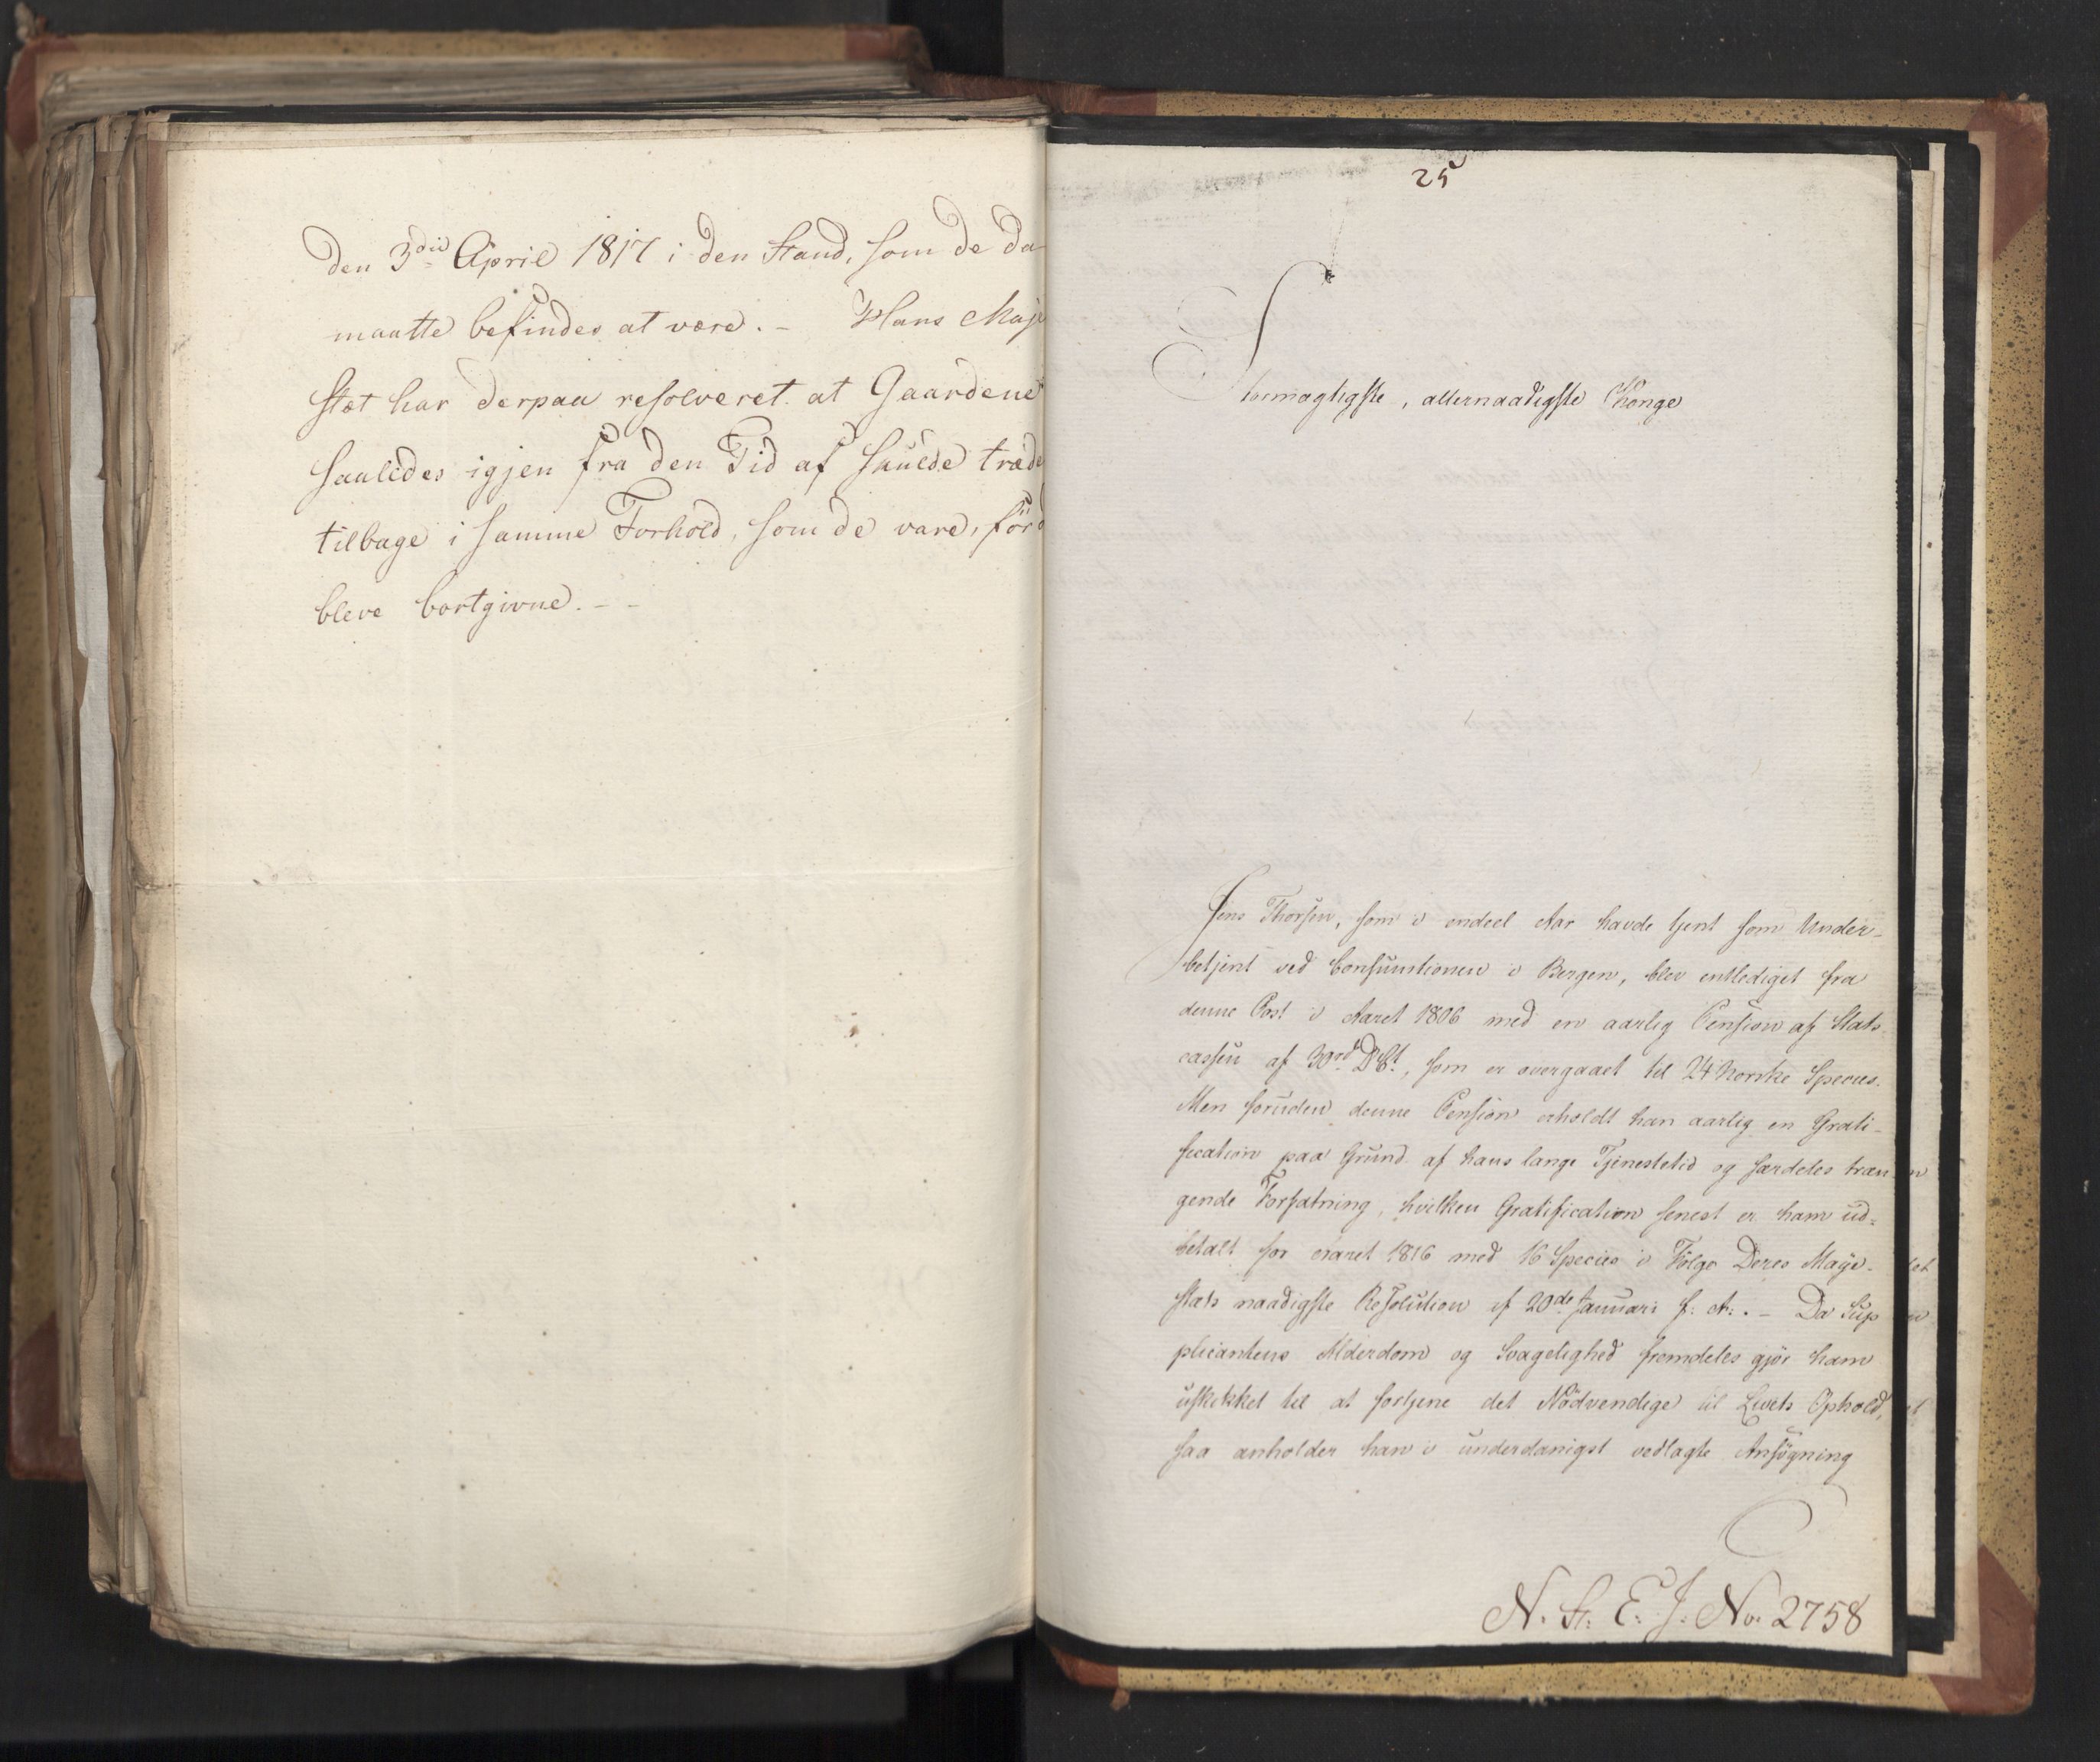 den 3die April 1817 i den Stand, som de da
maatte befindes at være. - Hans Maje
stæt har derpaa resolveret at Gaardene
saaledes igjen fra den Tid af skulde træde
tilbage i samme Forhold, som de vare, för d
bleve bortgivne. - -
25
Stormægtigste, allernaadigste Konge
Jens Thorsen, som i endeel Aar havde tjent som Under-
betjent ved Consumtionen i Bergen, blev entlediget fra
denne Post i Aaret 1806 med en aarlig Pension af Stats
cassen af 30rd DCt, som er overgaaet til 24 Norske Species.
Men foruden denne Pension erholdt han aarlig en Grati-
fication paa Grund af hans lange Tjenestetid og særdeles træn
gende Forfatning, hvilken Gratification senest er ham ud-
betalt for Aaret 1816 med 16 Species i Fölge Deres Maje-
stæts naadigste Resolution af 20de Januari f: A:. - Da Sup
plicantens Alderdom og Svagelighed fremdeles gjör ham
uskikket til at fortjene det Nödvendige til Livets Ophold,
saa anholder han i underdanigst vedlagte Ansögning
N. St: E: J: No. 2758